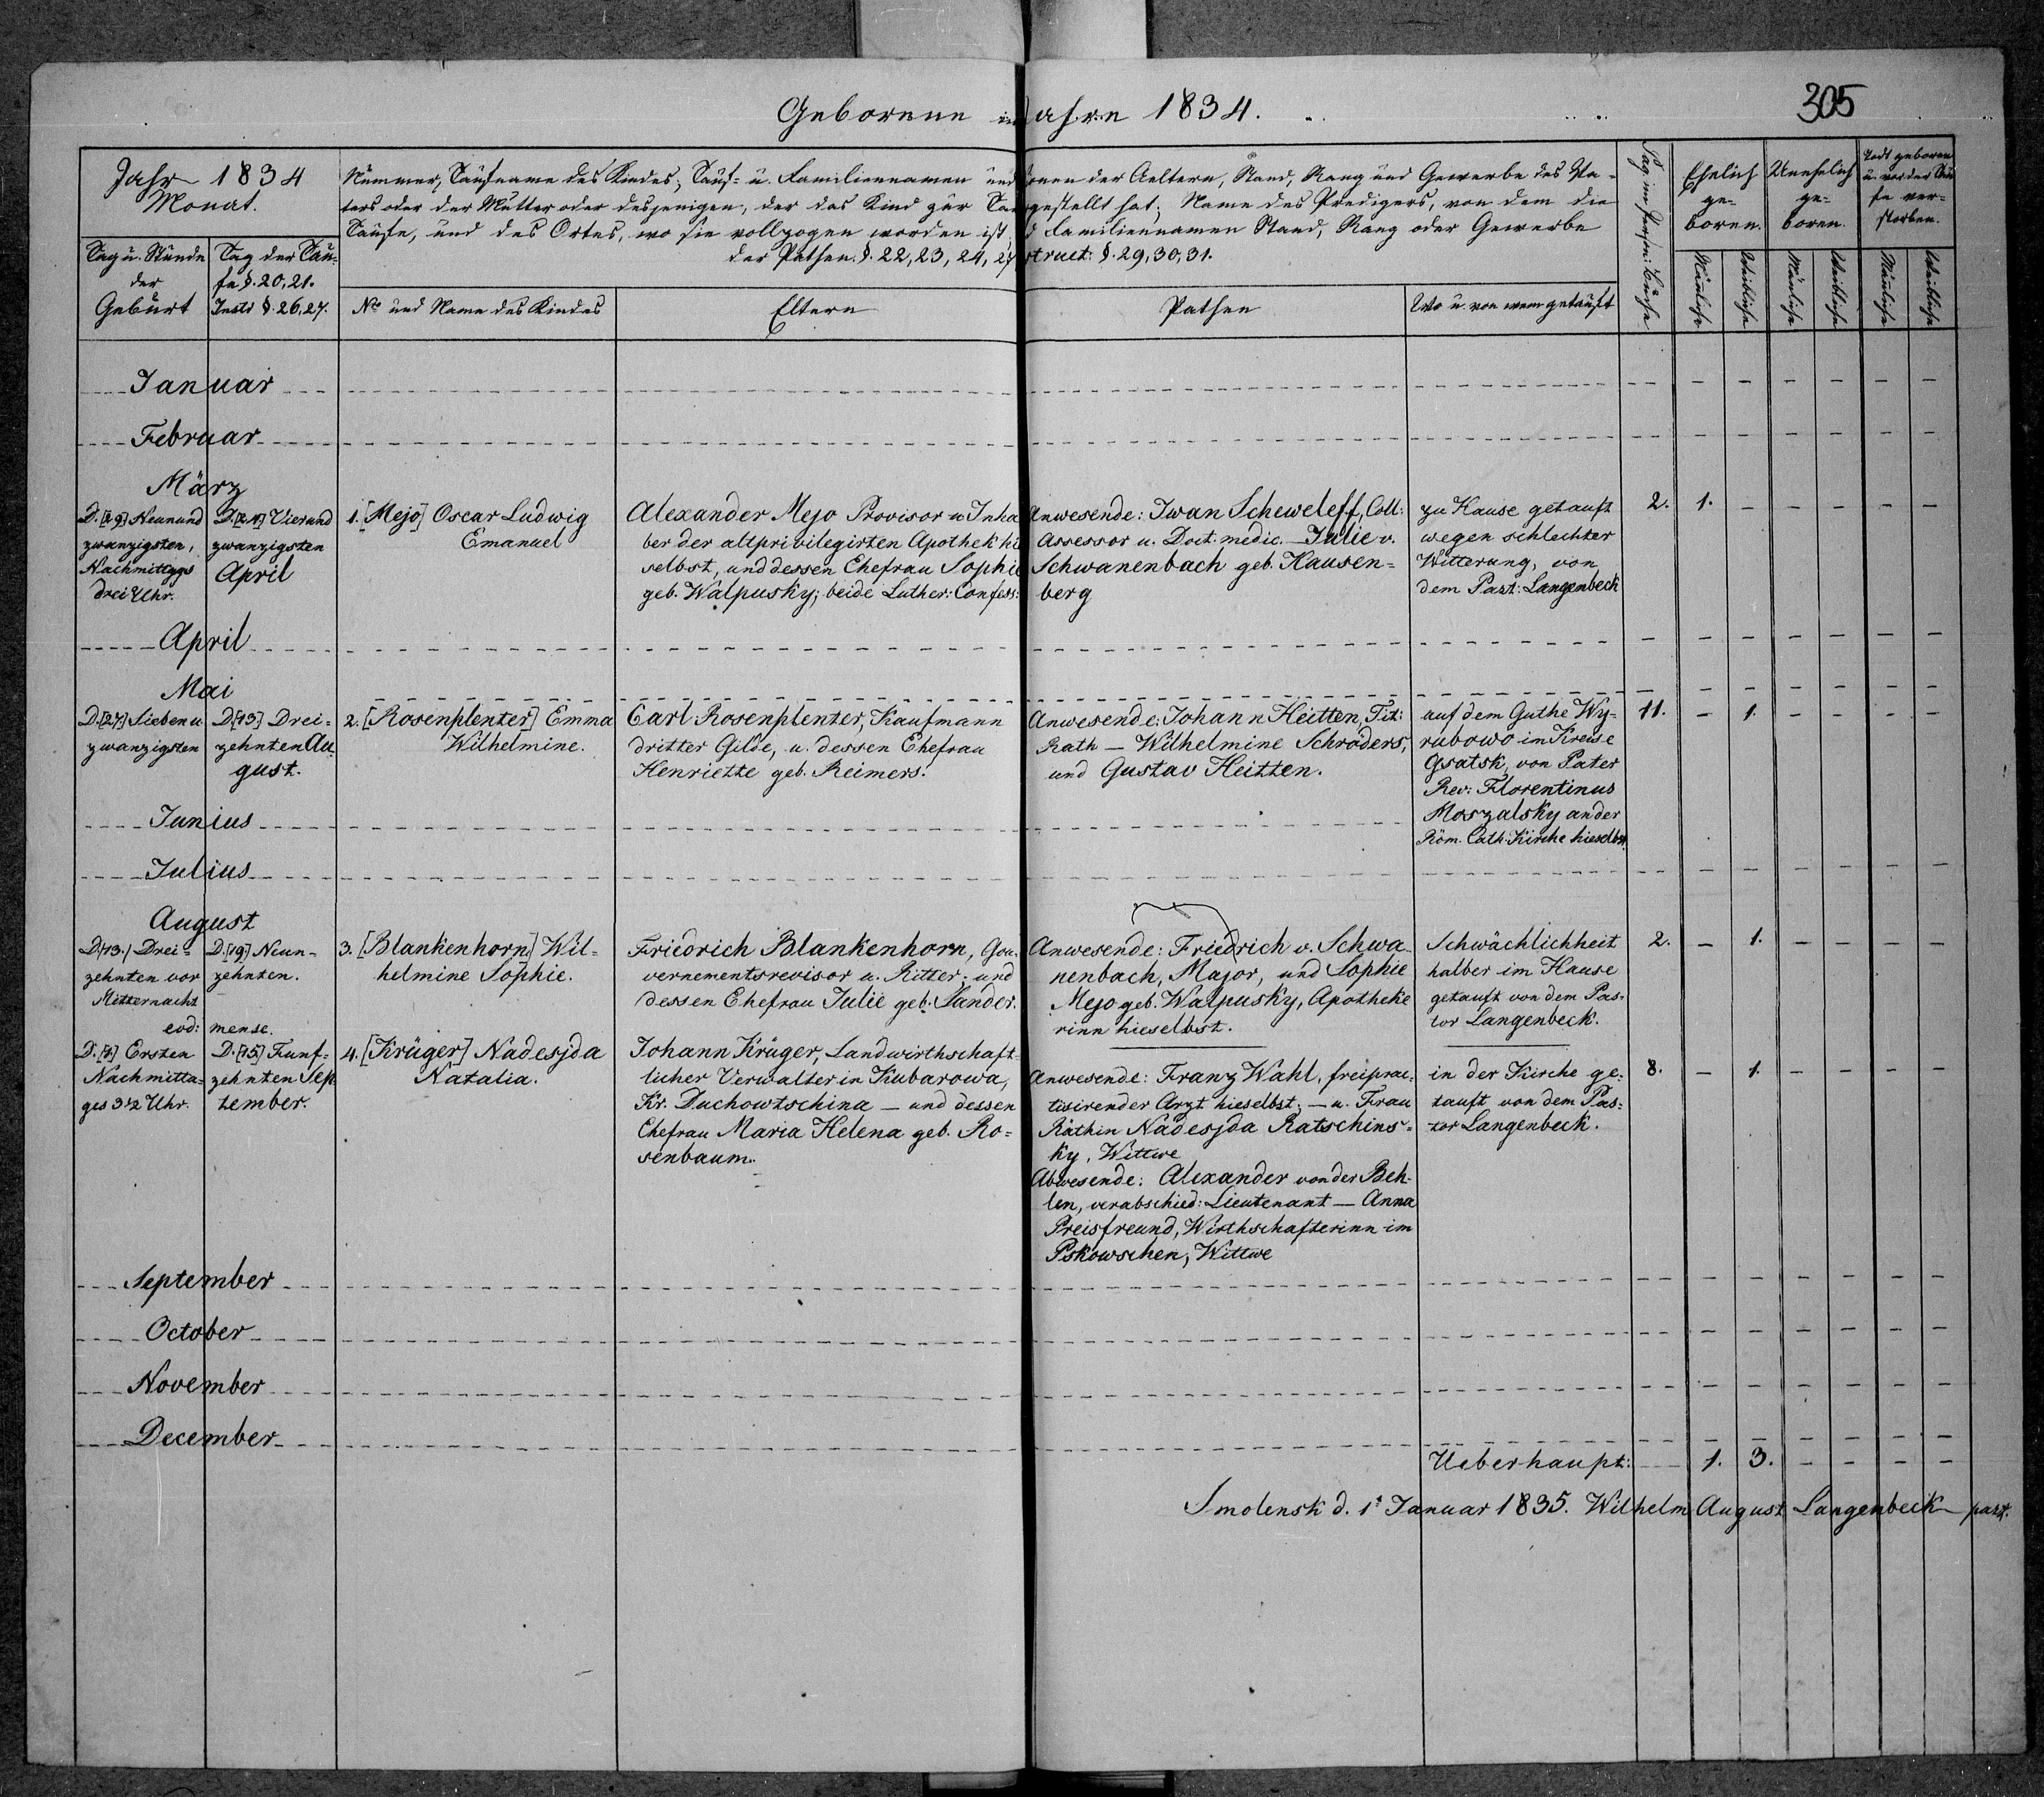 305
Geborene im Jahre 1834.
Jahr 1834
Monat.
Tag u. Stunde
der
Geburt
Tag der Tau-
fe §. 20, 21.
Instr §. 26, 27.
Nummer, Taufname des Kindes; Tauf= u. Familiennamen und
ters oder der Mutter oder desjenigen, der das Kind zur
Taufe, und des Ortes, wo sie vollzogen worden ist,
der Pathen. §. 22, 23, 24,
der Aeltern, Stand, Rang und Gewerbe des Va-
gestellt hat; Name des Predigers, von dem die
Familiennamen Stand, Rang oder Gewerbe
struct: §. 29, 30, 31.
No und Name des Kindes
Eltern
Pathen
Wo u. von wem getauft
Ehelich
ge-
boren.
Unehelich
ge-
boren.
Todt geboren
u. vor der Tau
fe ver-
storben.
Männliche
Weibliche
Männliche
Weibliche
Männliche
Weibliche
Januar
Februar
März
D. [29] Neunund
zwanzigsten,
Nachmittags
drei Uhr.
D. [24] Vierund
zwanzigsten
April
1. [Mejo] Oscar Ludwig
Emanuel
Alexander Mejo Provisor u Inha
ber der altprivilegirten Apothek hi
selbst, und dessen Ehefrau Sophie
geb. Walpusky; beide Luther: Confess:
Anwesende: Iwan Scheweleff, Coll:
Assessor u. Doct. medic. — Julie v.
Schwanenbach geb. Hausen=
berg
zu Hause getauft
wegen schlechter
Witterung, von
dem Past: Langenbeck
2. 1. – – – – –
April
Mai
D. [27] Sieben u
zwanzigsten
D. [13] Drei=
zehnten Au
gust.
2. [Rosenplenter] Emma
Wilhelmine.
Carl Rosenplenter, Kaufmann
dritter Gilde, u. dessen Ehefrau
Henriette geb. Reimers.
Anwesende: Johann Heitten, Tit:
Rath — Wilhelmine Schröders,
und Gustav Heitten.
auf dem Guthe Wy=
rubowo im Kreise
Gsatsk, von Pater
Rev: Florentinus
Moszalsky an der
Röm. Cath: Kirche hieselbst
11. – 1. – – – –
Junius
Julius
August
D. [13.] Drei=
zehnten vor
Mitternacht
D. [19] Neun-
zehnten.
3. [Blankenhorn] Wil=
helmine Sophie.
Friedrich Blankenhorn, Gou
vernementsrevisor u. Ritter, und
dessen Ehefrau Julie geb. Sander.
Anwesende: Friedrich v. Schwa
nenbach, Major, und Sophie
Mejo geb. Walpusky, Apotheke
rinn hieselbst.
Schwächlichheit
halber im Hause
getauft von dem Pas=
tor Langenbeck.
2. – 1. – – – –
eod: mense.
D. [1] Ersten
Nachmitta=
ges 3½ Uhr.
D. [15] Funf=
zehnten Sep
tember.
4. [Krüger] Nadesjda
Natalia.
Johann Krüger, Landwirthschaft=
licher Verwalter in Kubarowa,
Kr. Duchowtschina — und dessen
Ehefrau Maria Helena geb. Ro=
senbaum.
Anwesende: Franz Wahl, freiprac=
tisirender Arzt hieselbst; — u. Frau
Räthin Nadesjda Ratschins=
ky, Wittwe
Abwesende: Alexander von der Beh-
len, verabschied: Lieutenant — Anna
Preisfreund, Wirthschafterinn im
Pskowschen, Wittwe
in der Kirche ge=
tauft von dem Pas=
tor Langenbeck.
8. – 1. – – – –
September
October
November
December
Ueberhaupt: 1. 3. – – – –
Smolensk d. 1t Januar 1835. Wilhelm August Langenbeck past.